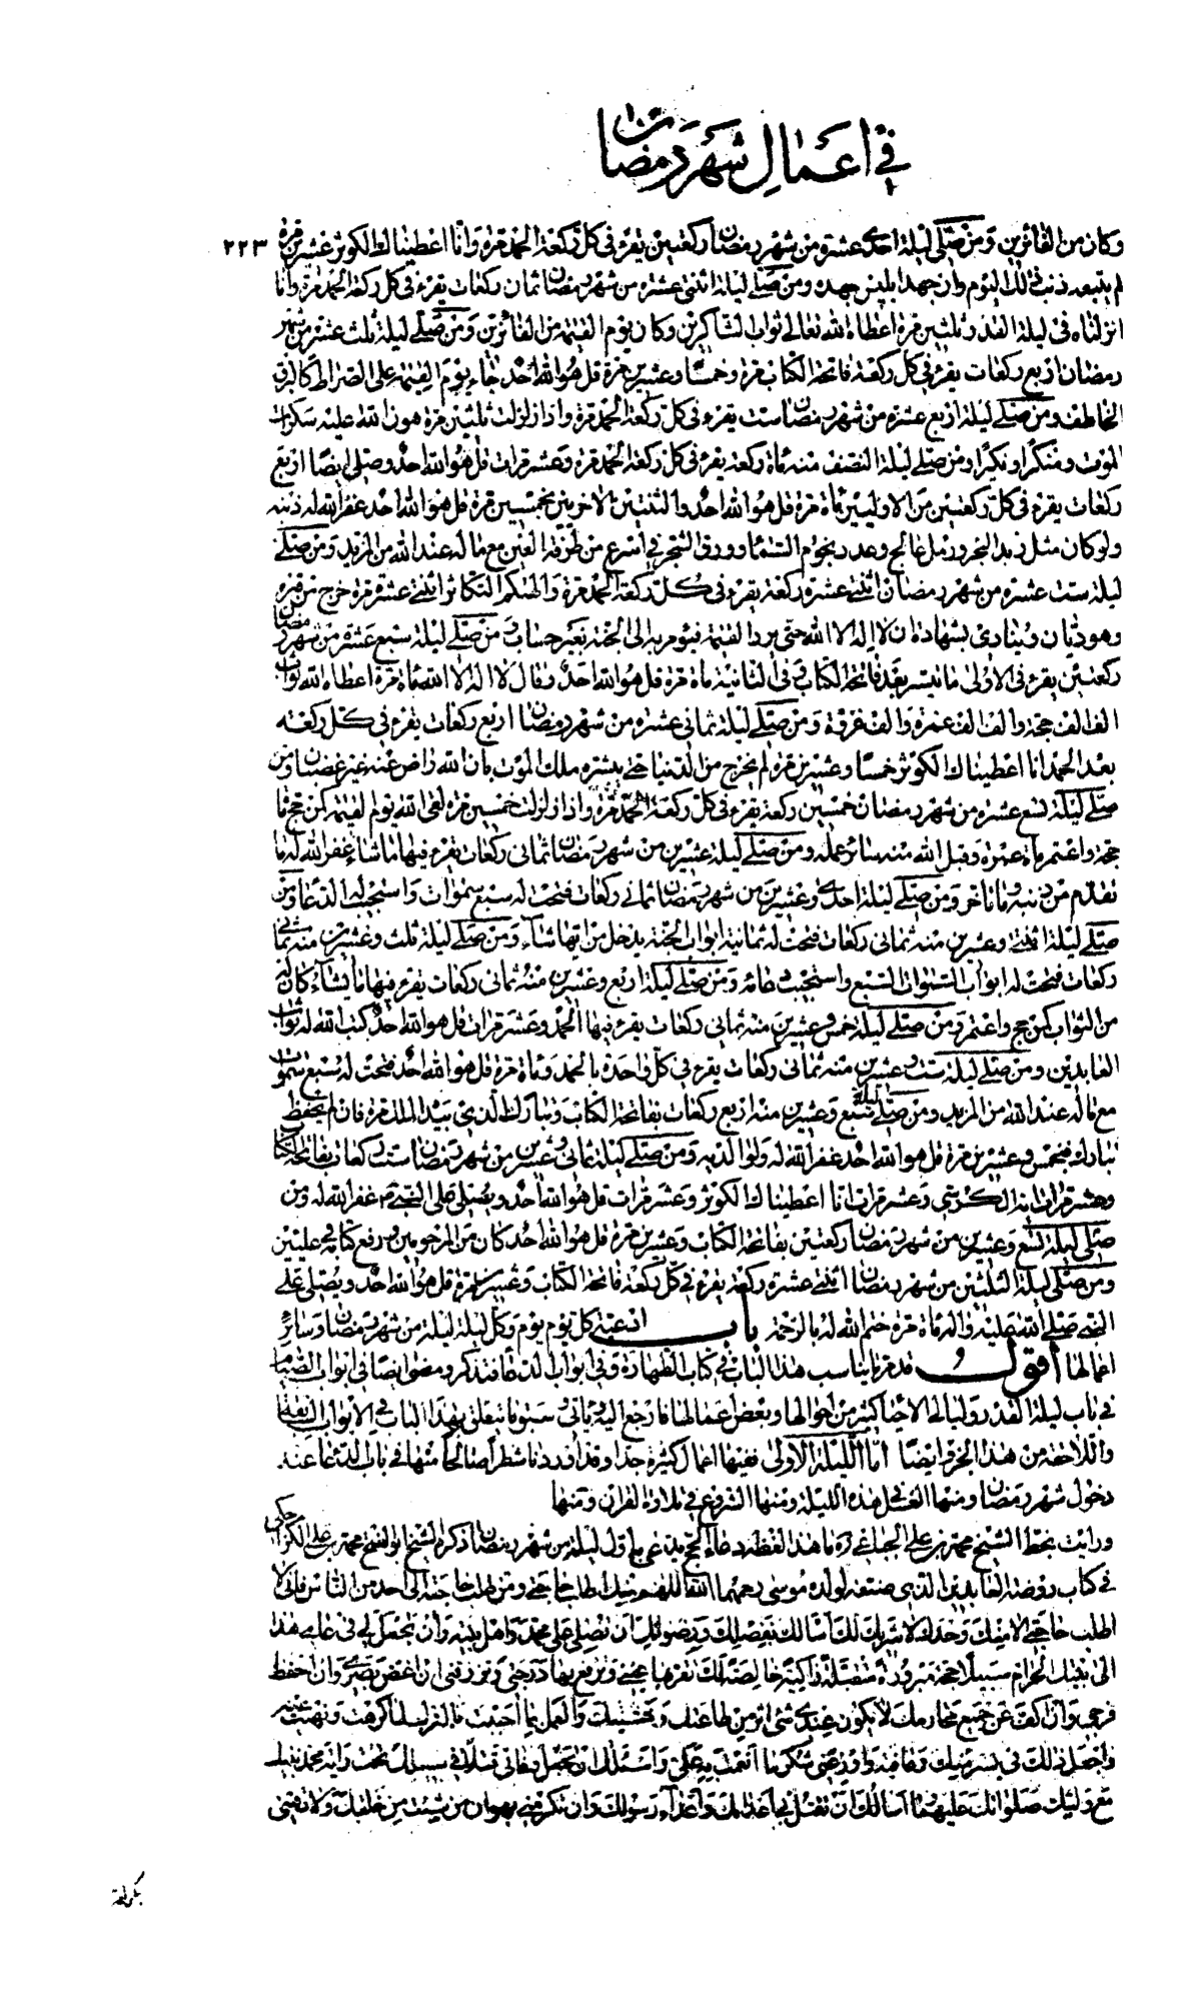 في اعمال شهر رمضان
٢٢٣
وكان من الفائزين ومن صلى ليلة احدى عشرة من شهر رمضان ركعتين يقرء في كل ركعة الحمد مرة وانا اعطيناك الكوثر عشرين مرة
لم يتبعه ذنب ذلك اليوم وان جهد ابليس جهده ومن صلى ليلة اثنتي عشرة من شهر رمضان ثمان ركعات يقرء في كل ركعة الحمد مرة وانا
انزلناه في ليلة القدر ثلثين مرة اعطاه الله تعالى ثواب الشاكرين وكان يوم القيمة من الفائزين ومن صلى ليلة ثلث عشرة من شهر
رمضان اربع ركعات يقرء في كل ركعة فاتحة الكتاب مرة وخمسا وعشرين مرة قل هو الله احد جاء يوم القيمة على الصراط كالبرق
الخاطف ومن صلى ليلة اربع عشرة من شهر رمضان ست يقرء في كل ركعة الحمد مرة واذا زلزلت ثلثين مرة هون الله عليه سكرات
الموت ومنكرا ونكيرا ومن صلى ليلة النصف منه مأة ركعة يقرء في كل ركعة الحمد مرة وعشر مرات قل هو الله احد وصلى ايضا اربع
ركعات يقرء في كل ركعتين من الاوليين مأة مرة قل هو الله احد والثنتين الاخريين خمسين مرة قل هو الله احد غفر الله له ذنبه
ولو كان مثل زبد البحر ورمل عالج وعدد نجوم السماء وورق الشجر في اسرع من طرفة العين مع ماله عند الله من المزيد ومن صلى
ليلة ست عشرة من شهر رمضان اثنتي عشرة ركعة يقرء في كل ركعة الحمد مرة والهيكم التكاثر اثنتي عشرة مرة خرج من قبره
وهو ريان وينادي بشهادة ان لا اله الا الله حتى يرد القيمة فيؤمر به الى الجنة بغير حساب ومن صلى ليلة سبع عشرة من شهر رمضان
ركعتين يقرء في الاولى ما تيسر بعد فاتحة الكتاب وفي الثانية مأة مرة قل هو الله احد وقال لا اله الا الله مأة مرة اعطاه الله ثواب
الف الف حجة والف الف عمرة والف غزوة ومن صلى ليلة ثماني عشرة من شهر رمضان اربع ركعات يقرء في كل ركعة
بعد الحمد انا اعطيناك الكوثر خمسا وعشرين مرة لم يخرج من الدنيا حتى يبشره ملك الموت بان الله راض عنه غير غضبان ومن
صلى ليلة تسع عشرة من شهر رمضان خمسين ركعة يقرء في كل ركعة الحمد مرة واذا زلزلت خمسين مرة لقى الله يوم القيمة كمن حج مأة
حجة واعتمر مأة عمرة وقبل الله منه سائر عمله ومن صلى ليلة عشرين من شهر رمضان ثماني ركعات يقرء فيها ما شاء غفر الله له ما
تقدم من ذنبه وما تاخر ومن صلى ليلة احدى وعشرين من شهر رمضان ثماني ركعات فتحت له سبع سموات واستجيب له الدعاء ومن
صلى ليلة اثنتي وعشرين منه ثماني ركعات فتحت له ثمانية ابواب الجنة يدخل من ايها شاء ومن صلى ليلة ثلث وعشرين منه ثماني
ركعات فتحت له ابواب السموات السبع واستجيب دعائه ومن صلى ليلة اربع وعشرين منه ثماني ركعات يقرء فيها ما يشاء كان له
من الثواب كمن حج واعتمر ومن صلى ليلة خمس وعشرين منه ثماني ركعات يقرء فيها الحمد وعشر مرات قل هو الله احد كتب الله له ثواب
العابدين ومن صلى ليلة ست وعشرين منه ثماني ركعات يقرء في كل واحدة بالحمد ومأة مرة قل هو الله احد فتحت له سبع سموات
مع ماله عند الله من المزيد ومن صلى ليلة سبع وعشرين منه اربع ركعات بفاتحة الكتاب وتبارك الذي بيده الملك مرة فان لم يحفظ
تبارك فبخمس وعشرين مرة قل هو الله احد غفر الله له ولوالديه ومن صلى ليلة ثماني وعشرين من شهر رمضان ست ركعات بفاتحة الكتاب
وعشر مرات اية الكرسي وعشر مرات انا اعطيناك الكوثر وعشر مرات قل هو الله احد ويصلى على النبي ص غفر الله له ومن
صلى ليلة التسع وعشرين من شهر رمضان ركعتين بفاتحة الكتاب وعشرين مرة قل هو الله احد كان من المرحومين ورفع كتابه في عليين
ومن صلى ليلة الثلثين من شهر رمضان اثنتي عشرة ركعة يقرء في كل ركعة فاتحة الكتاب وعشرين مرة قل هو الله احد ويصلى على
النبي صلى الله عليه واله مأة مرة ختم الله له بالرحمة باب ادعية كل يوم يوم وكل ليلة ليلة من شهر رمضان وسائر
اعمالها اقول قد مر ما يناسب هذا الباب في كتاب الطهارة وفي ابواب الدعاء فتذكر ومضى ايضا في ابواب الصيام
في باب ليلة القدر وليالي الاحيا كثير من احوالها وبعض اعمالها فارجع اليه وياتي وسبق ما يتعلق بهذا الباب في الابواب السابقة
واللاحقة من هذا الجزء ايضا اما الليلة الاولى ففيها اعمال كثيرة جدا وقد اوردنا شطرا صالحا منها في باب الدعاء عند
دخول شهر رمضان ومنها الغسل في هذه الليلة ومنها الشروع في تلاوة القران ومنها
ورايت بخط الشيخ محمد بن علي الجباعي ره ما هذا لفظه دعاء الحج يدعى به اول ليلة من شهر رمضان ذكره الشيخ ابو الفتح محمد بن علي الكراجكي
في كتاب روضة العابدين الذي صنفه لولده موسى رحمهما الله اللهم منك اطلب حاجتي ومن طلب حاجته الى احد من الناس فاني لا
اطلب حاجتي الا منك وحدك لا شريك لك اسالك بفضلك ورضوانك ان تصلي على محمد واهل بيته وان تجعل لي في عامي هذا
الى بيتك الحرام سبيلا حجة مبرورة متقبلة زاكية خالصة لك تقر بها عيني وترفع بها درجتي وترزقني ان اغض بصري وان احفظ
فرجي وان اكف عن جميع محارمك حتى لا يكون عندي شئ اثر من طاعتك وخشيتك والعمل بما احببت والترك لما كرهت ونهيت عنه
واجعل ذلك في يسر منك وعافية واوزعني شكر ما انعمت به علي واسئلك ان تجعل وفاتي قتلا في سبيلك تحت راية محمد نبيك
مع وليك صلواتك عليهما اسالك ان تقتل بي اعدائك واعداء رسولك وان تكرمني بهوان من شئت من خلقك ولا تهني
بكرامة